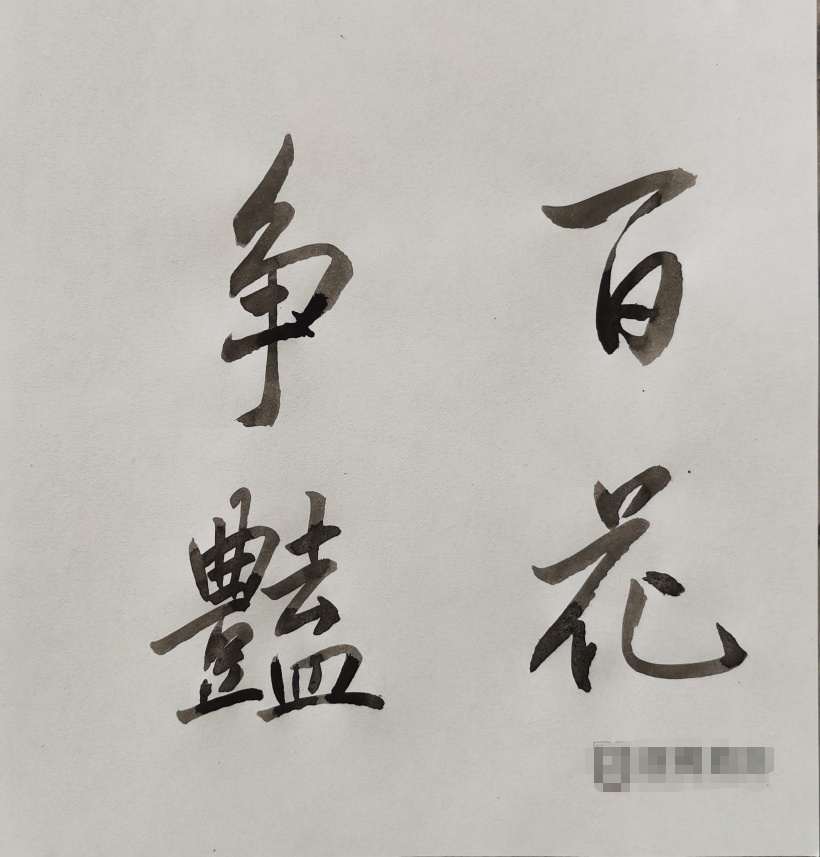 百花
争豔